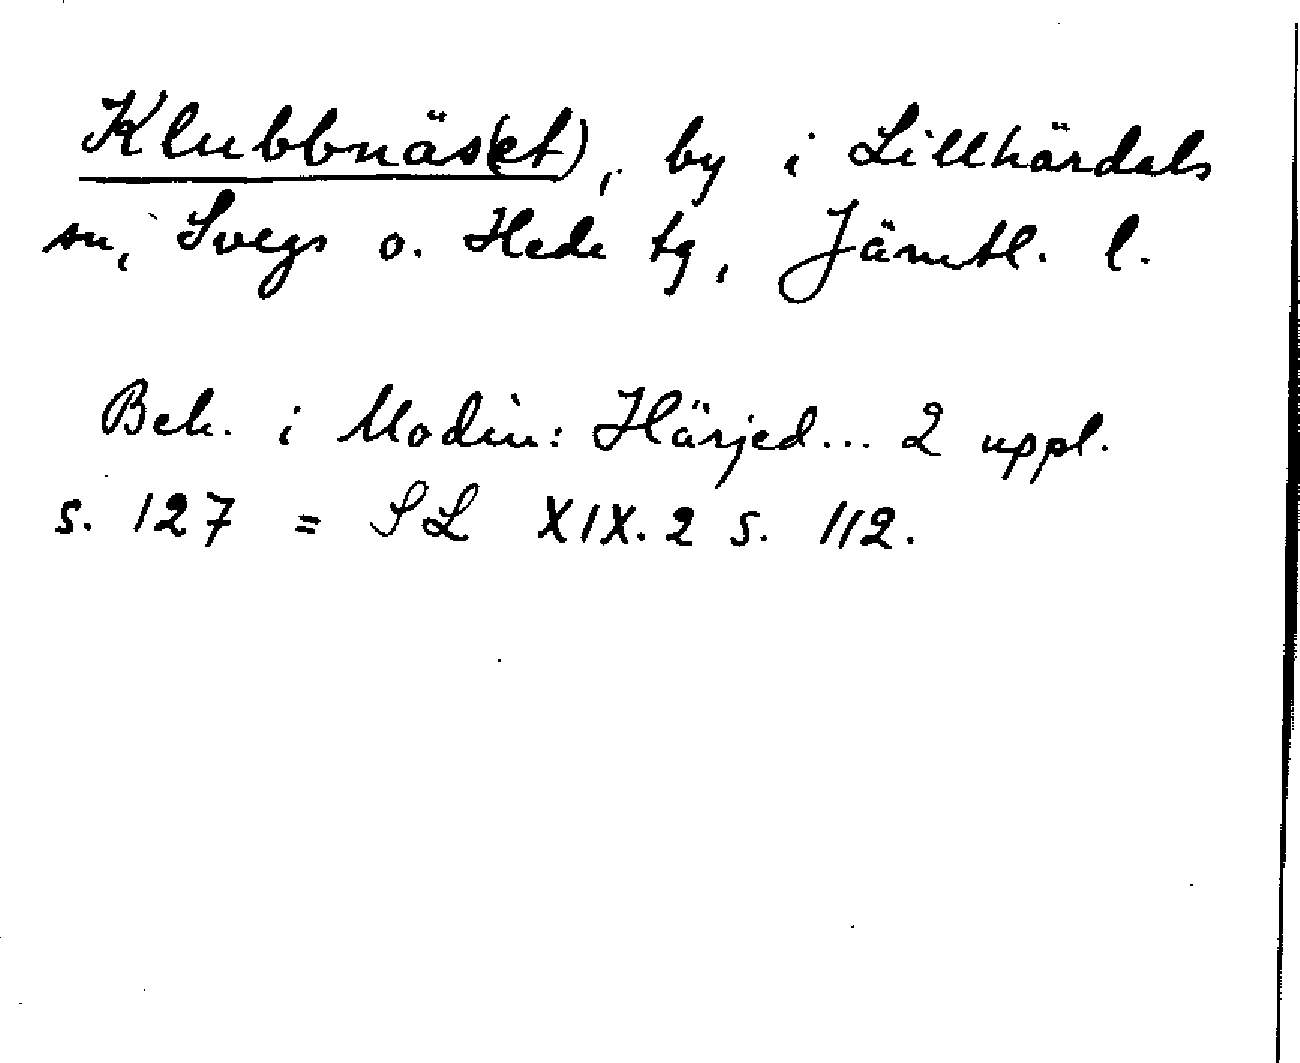 Klubbnäs(et), by i Lillhärdals
sn, Svegs o. Hede tg, Jämtl. l.
Beh. i Modin: Härjed... 2 uppl.
s. 127 = SL XIX. 2 s. 112.